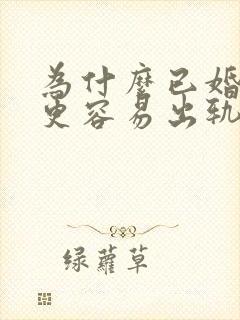 為什麼已婚
更容易出軌
绿蘿草